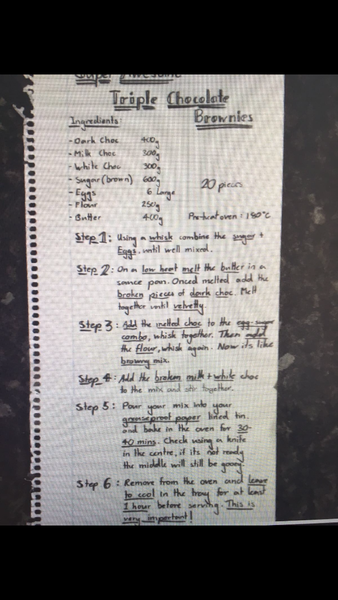 Super Awesome
Triple Chocolate
Brownies
Ingredients:
- Dark Choc 400g
- Milk Choc 300g
- White Choc 300g
- Sugar (brown) 600g
- Eggs 6 Large
- Flour 250g
- Butter 400g
20 pieces
Pre-heat oven: 180°C
Step 1: Using a whisk combine the sugar +
Eggs. until well mixed.
Step 2: On a low heat melt the butter in a
sauce pan. Onced melted add the
broken pieces of dark choc. Melt
together until velvetty.
Step 3: Add the melted choc to the egg-sugar
combo, whisk together. Then add
the flour, whisk again. Now its like
browny mix.
Step 4: Add the broken milk + white choc
to the mix and stir together.
Step 5: Pour your mix into your
greaseproof paper lined tin.
and bake in the oven for 30-
40 mins. Check using a knife
in the centre, if its not ready
the middle will still be gooey.
Step 6: Remove from the oven and leave
to cool in the tray for at least
1 hour before serving. This is
very important!